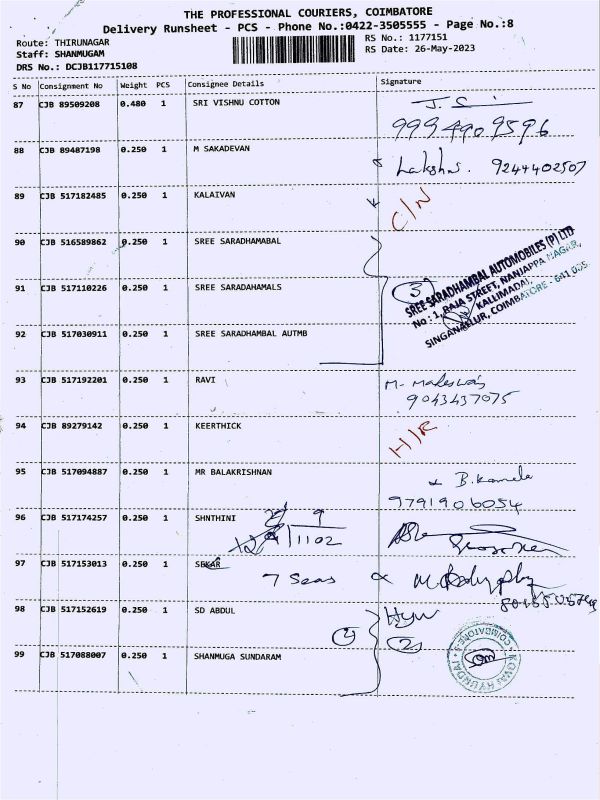 THE PROFESSIONAL COURIERS, COIMBATORE
Delivery Runsheet - PCS - Phone No.:0422-3505555 - Page No.:8
Route: THIRUNAGAR
Staff: SHANMUGAM
DRS No.: DCJB117715108
RS No.: 1177151
RS Date: 26-May-2023
S No Consignment No Weight PCS Consignee Details Signature
87 CJB 89509208 0.480 1 SRI VISHNU COTTON
9994909596
88 CJB 89487198 0.250 1 M SAKADEVAN Lakshmi. 9244402507
89 CJB 517182485 0.250 1 KALAIVAN C/N
90 CJB 516589862 0.250 1 SREE SARADHAMABAL
91 CJB 517110226 0.250 1 SREE SARADAHAMALS 3
SREE SARADHAMBAL AUTOMOBILES (P) LTD
No : 1, RAJA STREET, NANJAPPA NAGAR,
KALLIMADAI,
SINGANALLUR, COIMBATORE - 641 005
92 CJB 517030911 0.250 1 SREE SARADHAMBAL AUTMB
93 CJB 517192201 0.250 1 RAVI M- Maheswari
9043437075
94 CJB 89279142 0.250 1 KEERTHICK H/R
95 CJB 517094887 0.250 1 MR BALAKRISHNAN B. Kamala
9791906054
96 CJB 517174257 0.250 1 SHNTHINI 9
1102
97 CJB 517153013 0.250 1 SEKAR 7 Seas
98 CJB 517152619 0.250 1 SD ABDUL Hyu
2
99 CJB 517088007 0.250 1 SHANMUGA SUNDARAM
KOVAI HYUNDAI COIMBATORE